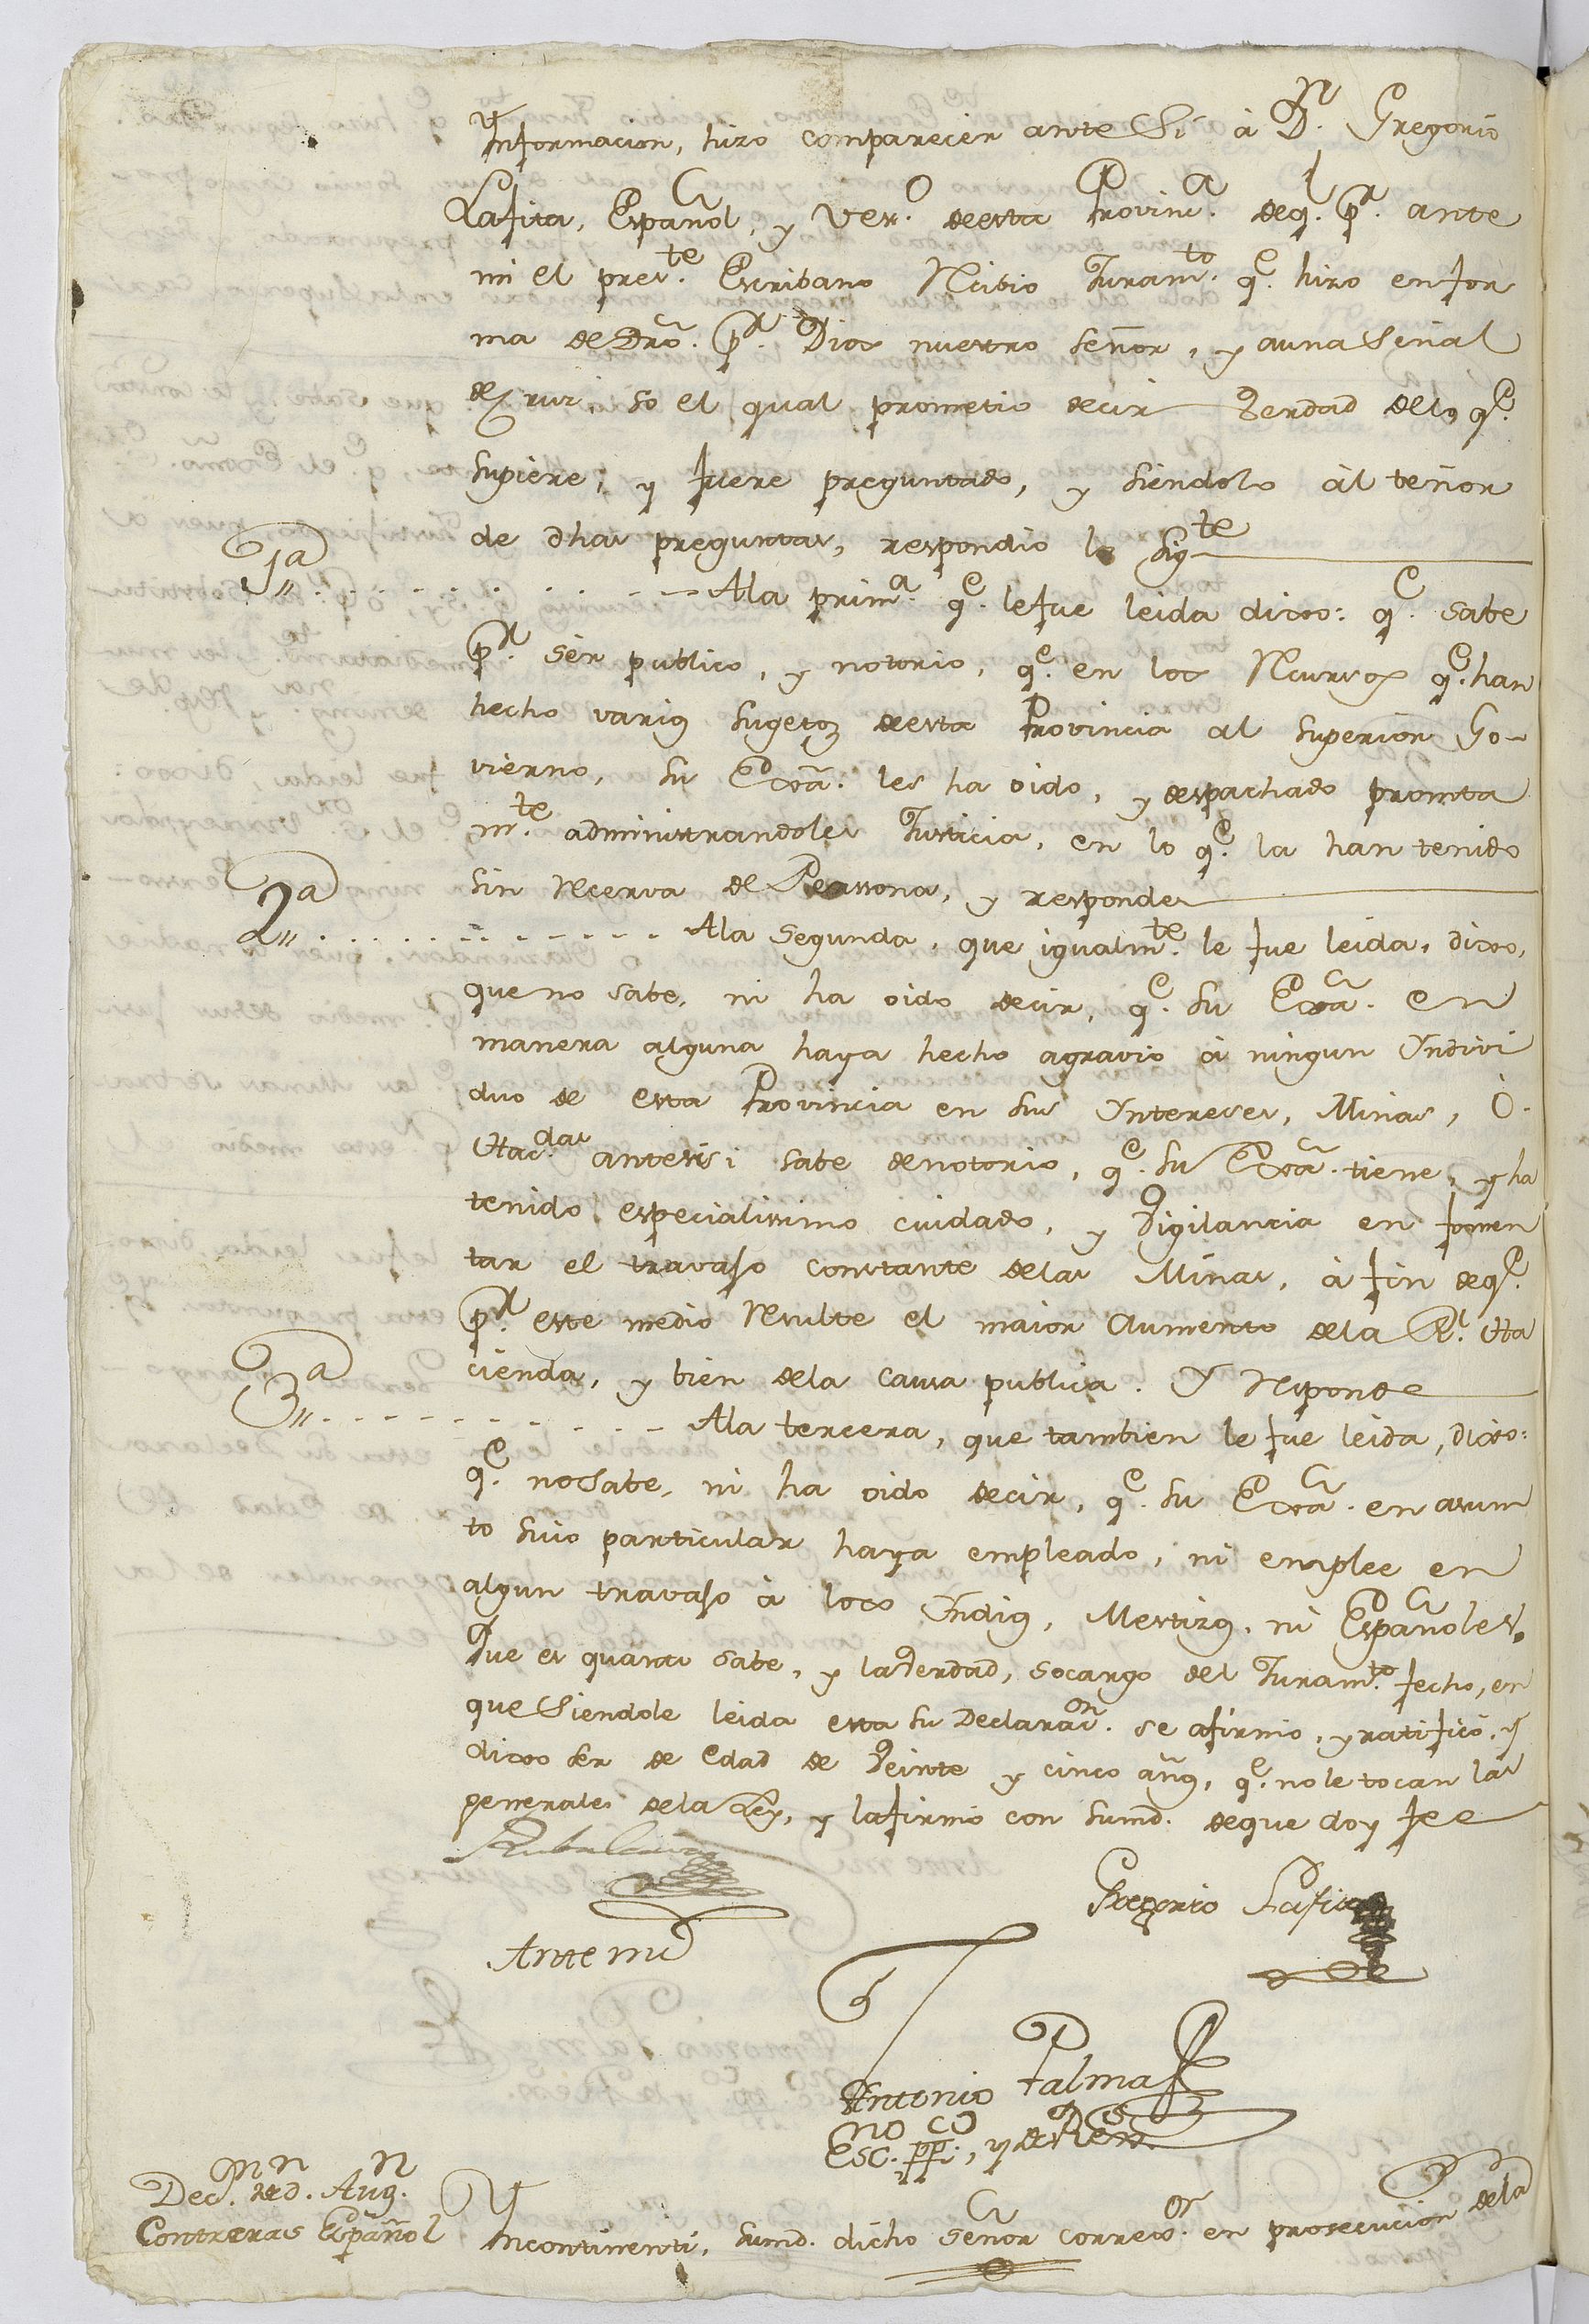 Informacion, hizo comparecer ante Si à Dn. Gregorio
Lafita, Español, y Veco. de esta Provinca. del ql. pr. ante
mi el preste. Escribano Recibio Juramto. qe. hizo en for
ma de Dro. pr. Dios nuestro señor, y a una Señal
de Cruz, so el qual prometio decir Verdad de lo qe.
supiere, y fuere preguntado, y siendolo àl tenor
de dhas preguntas, respondio lo Sigte
1a,, A la prima. qe. le fue leida dixo: qe. sabe
pr. sèr publico, y notorio, qe. en los Recursos qe. han
hecho varios sugetos de esta Provincia al superior Go-
vierno, su Exa. les ha oido, y despachado prompta
mte. administrandoles Justicia, en lo qe. la han tenido
sin recerva de Perssona, y responde
2a,, A la segunda, que igualmte. le fue leida, dixo,
que no sabe, ni ha oido decir, qe. su Exa. en
manera alguna haya hecho agravio à ningun Indivi
duo de esta Provincia en sus Intereses, Minas, ò
Hacdas. antes si sabe de notorio, qe. su Exa. tiene, y ha
tenido especialissimo cuidado, y Vigilancia en fomen
tar el travajo constante de las Minas, à fin de qe.
pr. este medio Resulte el maior Aumento de la Rl. Ha
cienda, y bien de la causa publica. Y Responde
3a,, A la tercera, que tambien le fue leida, dixo:
qe. no sabe, ni ha oido decir, qe. su Exa. en asum
to suio particular haya empleado, ni emplee en
algun travajo à los Indios, Mestizos, ni Españoles.
Que es quanto sabe, y la Verdad, so cargo del Juramto. fecho, en
que Siendole leida esta su Declaraon. se afirmo, y ratificó, y
dixo ser de edad de Veinte y cinco años, qe. no le tocan las
generales de la Ley, y la firmó con sumd. de que doy fee
Gregorio Lafita
Ante mi
Antonio Palma
Escno. ppco., y de Rl.
Decn. de Dn. Augn.
Contreras Español
Incontinenti, sumd. dicho señor correor. en prosecucion de la